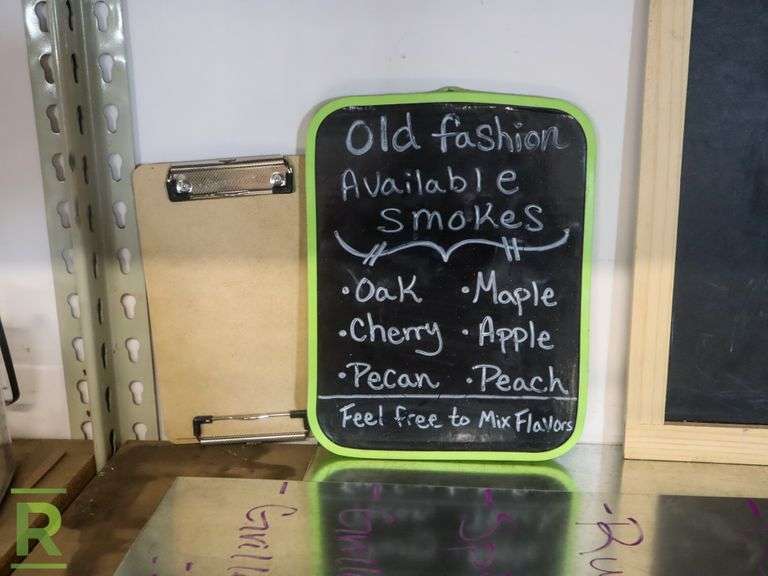 Old fashion
Available
smokes
• Oak • Maple
• Cherry • Apple
• Pecan • Peach
Feel free to Mix Flavors
R